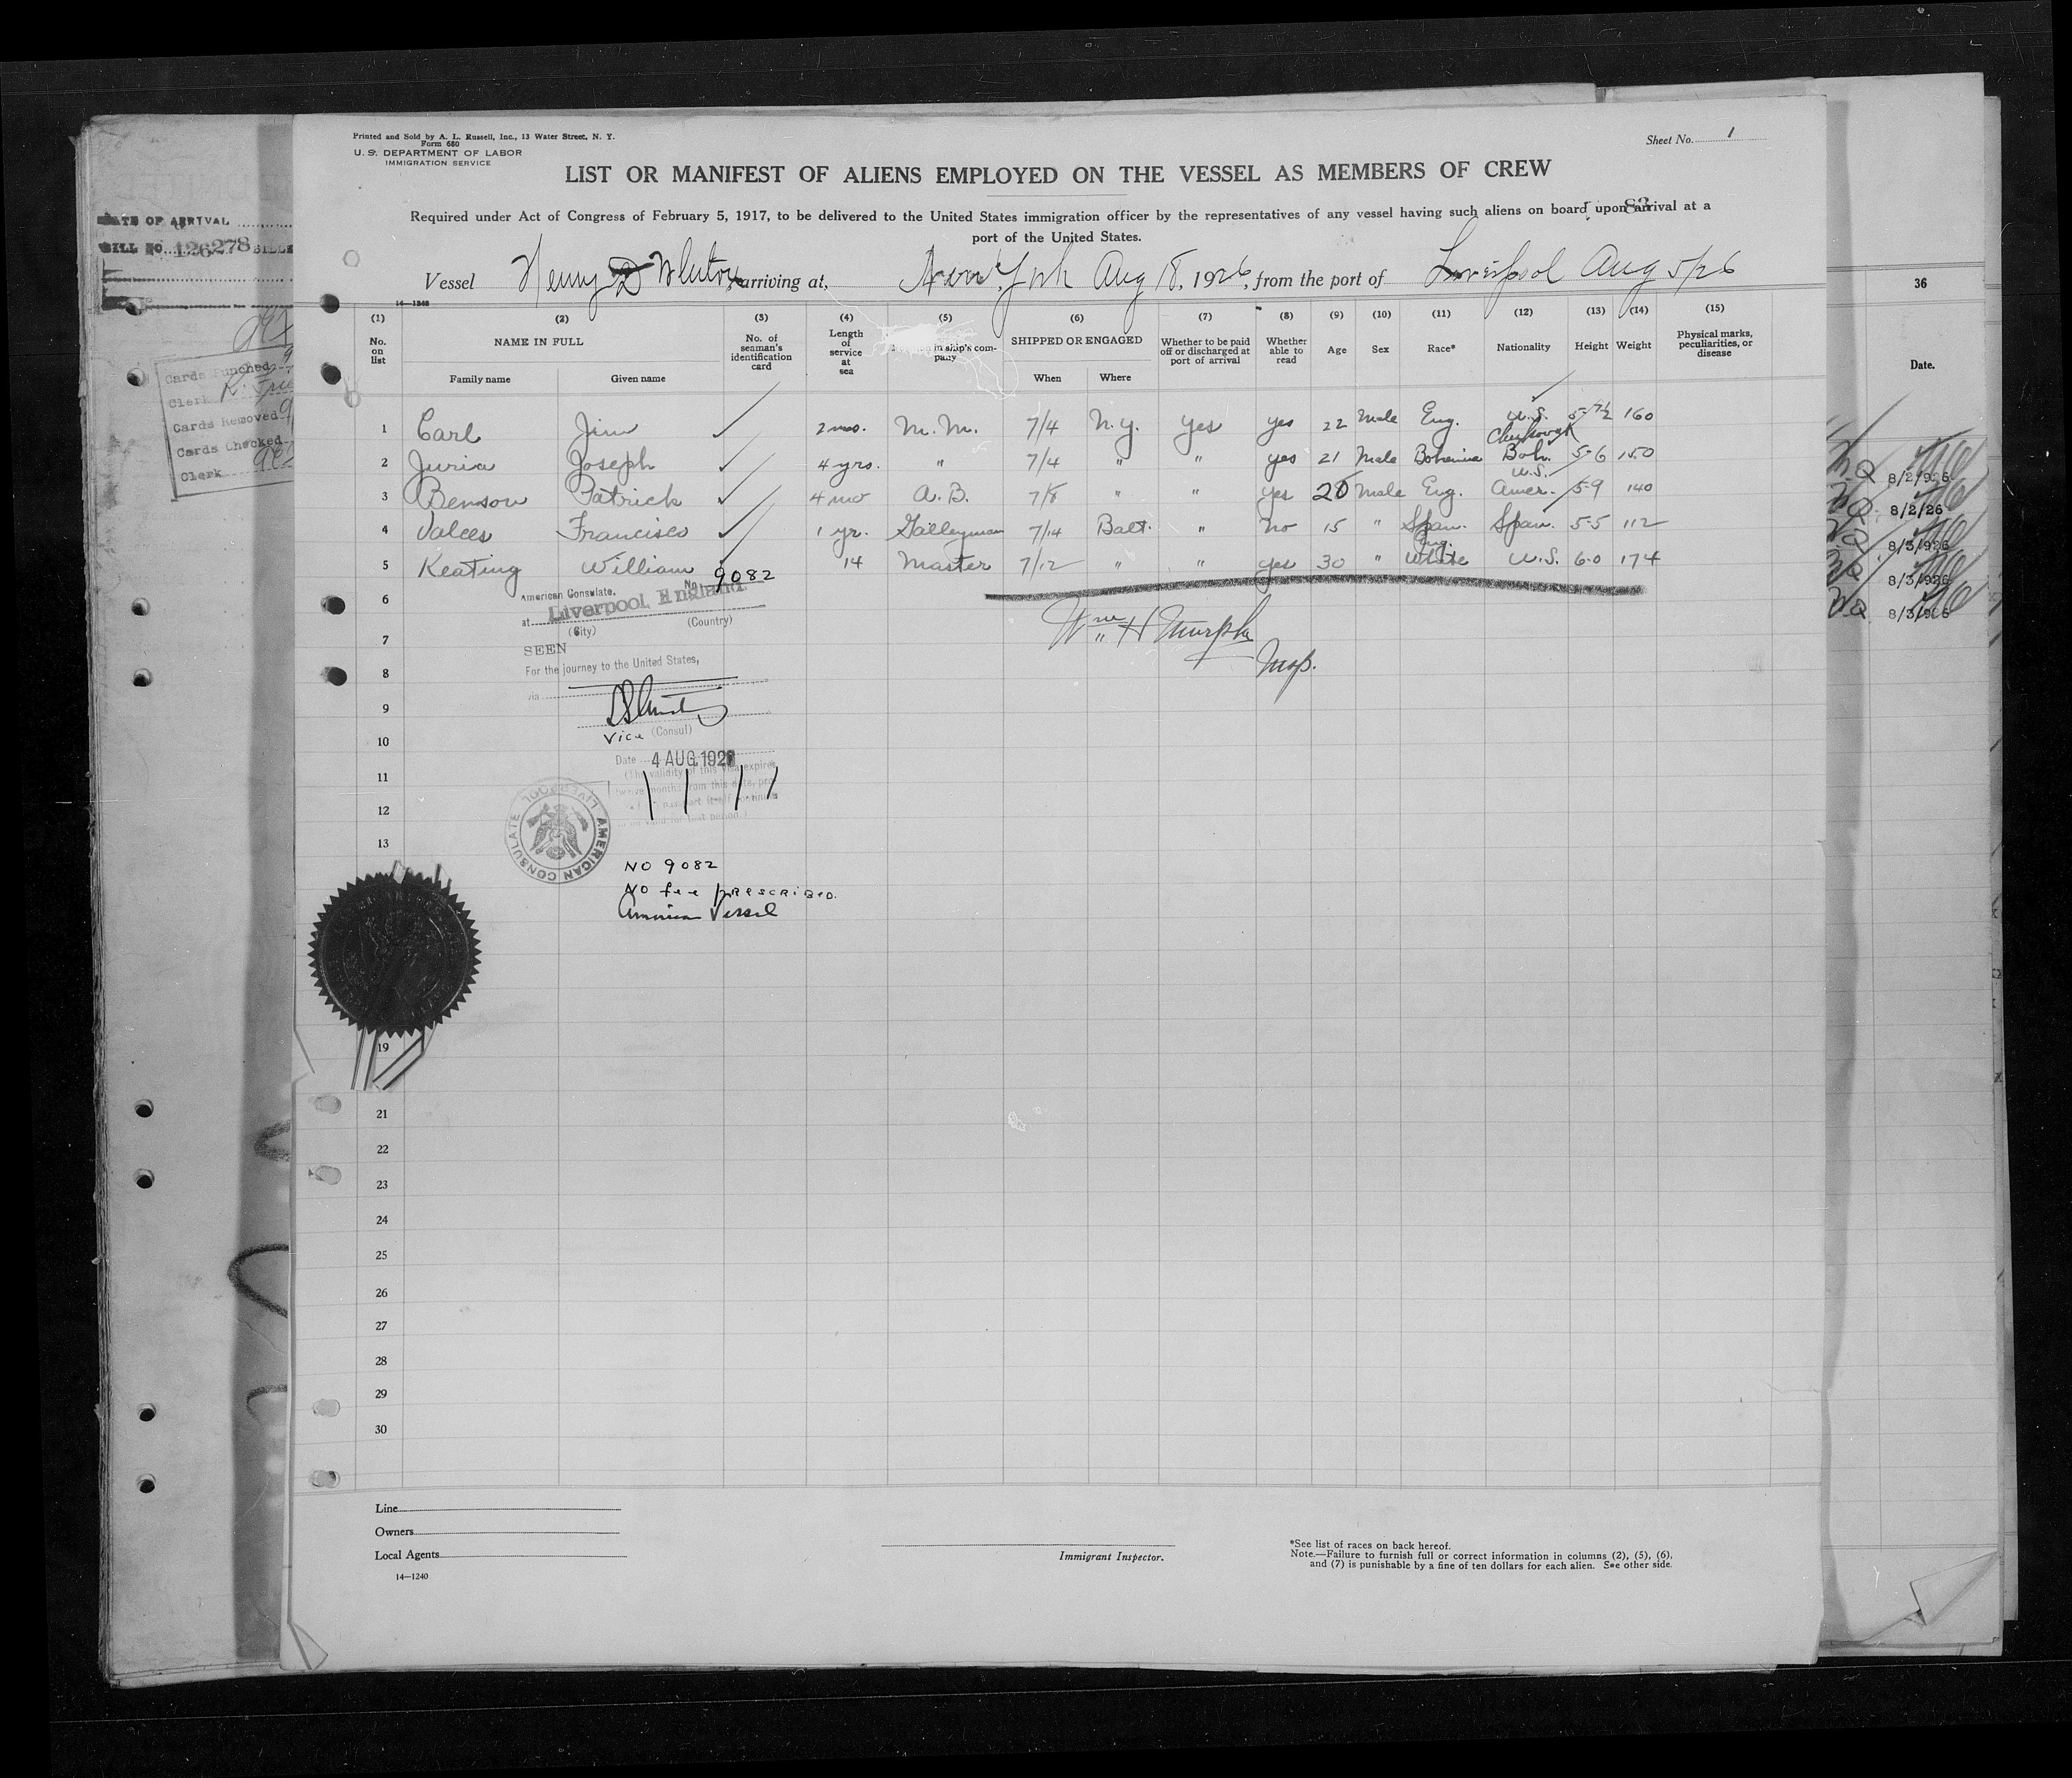 Printed and Sold by A. L. Russell, Inc., 13 Water Street, N. Y.
Form 680
U. S. DEPARTMENT OF LABOR
IMMIGRATION SERVICE
Sheet No. 1
LIST OR MANIFEST OF ALIENS EMPLOYED ON THE VESSEL AS MEMBERS OF CREW
Required under Act of Congress of February 5, 1917, to be delivered to the United States immigration officer by the representatives of any vessel having such aliens on board upon arrival at a
port of the United States.
DATE OF ARRIVAL
BILL NO. 126278
Vessel Henry D Whiton arriving at, New York Aug 18, 1926, from the port of Liverpool Aug 5/26
14—1240
36
Date.
(1) (2) (3) (4) (5) (6) (7) (8) (9) (10) (11) (12) (13) (14) (15)
No. on list
NAME IN FULL
Family name Given name
No. of seaman's identification card
Length of service at sea
in ship's company
SHIPPED OR ENGAGED
When Where
Whether to be paid off or discharged at port of arrival
Whether able to read
Age
Sex
Race*
Nationality
Height
Weight
Physical marks, peculiarities, or disease
Cards Punched
Clerk
Cards Removed
Cards Checked
Clerk
1 Carl Jim 2 mos. M.M. 7/4 N.Y. Yes yes 22 Male Eng. U.S. 5-7½ 160
2 Juria Joseph 4 yrs. " 7/4 " " yes 21 Male Bohemia Boh. 5-6 150
U.S.
3 Benson Patrick 4 mo A.B. 7/8 " " yes Male Eng. Amer. 5-9 140
4 Francisco 1 yr. Galleyman 7/14 Balt. " no 15 " Span. Span. 5-5 112
Eng.
5 Keating William 14 Master 7/12 " " yes 30 " White U.S. 6-0 174
8/2/926
8/2/26
8/3/926
8/3/926
8/3/926
No. 9082
American Consulate,
at Liverpool, England
(City) (Country)
SEEN
For the journey to the United States,
via
Vice (Consul)
Date 4 AUG. 1926
(The validity of this visa expires
twelve months from this date, pro-
AMERICAN CONSULATE LIVERPOOL
Wm H Murphy
Insp.
No 9082
No fee prescribed.
American Vessel
6
7
8
9
10
11
12
13
19
21
22
23
24
25
26
27
28
29
30
Line
Owners
Local Agents
14—1240
Immigrant Inspector.
*See list of races on back hereof.
Note.—Failure to furnish full or correct information in columns (2), (5), (6),
and (7) is punishable by a fine of ten dollars for each alien. See other side.